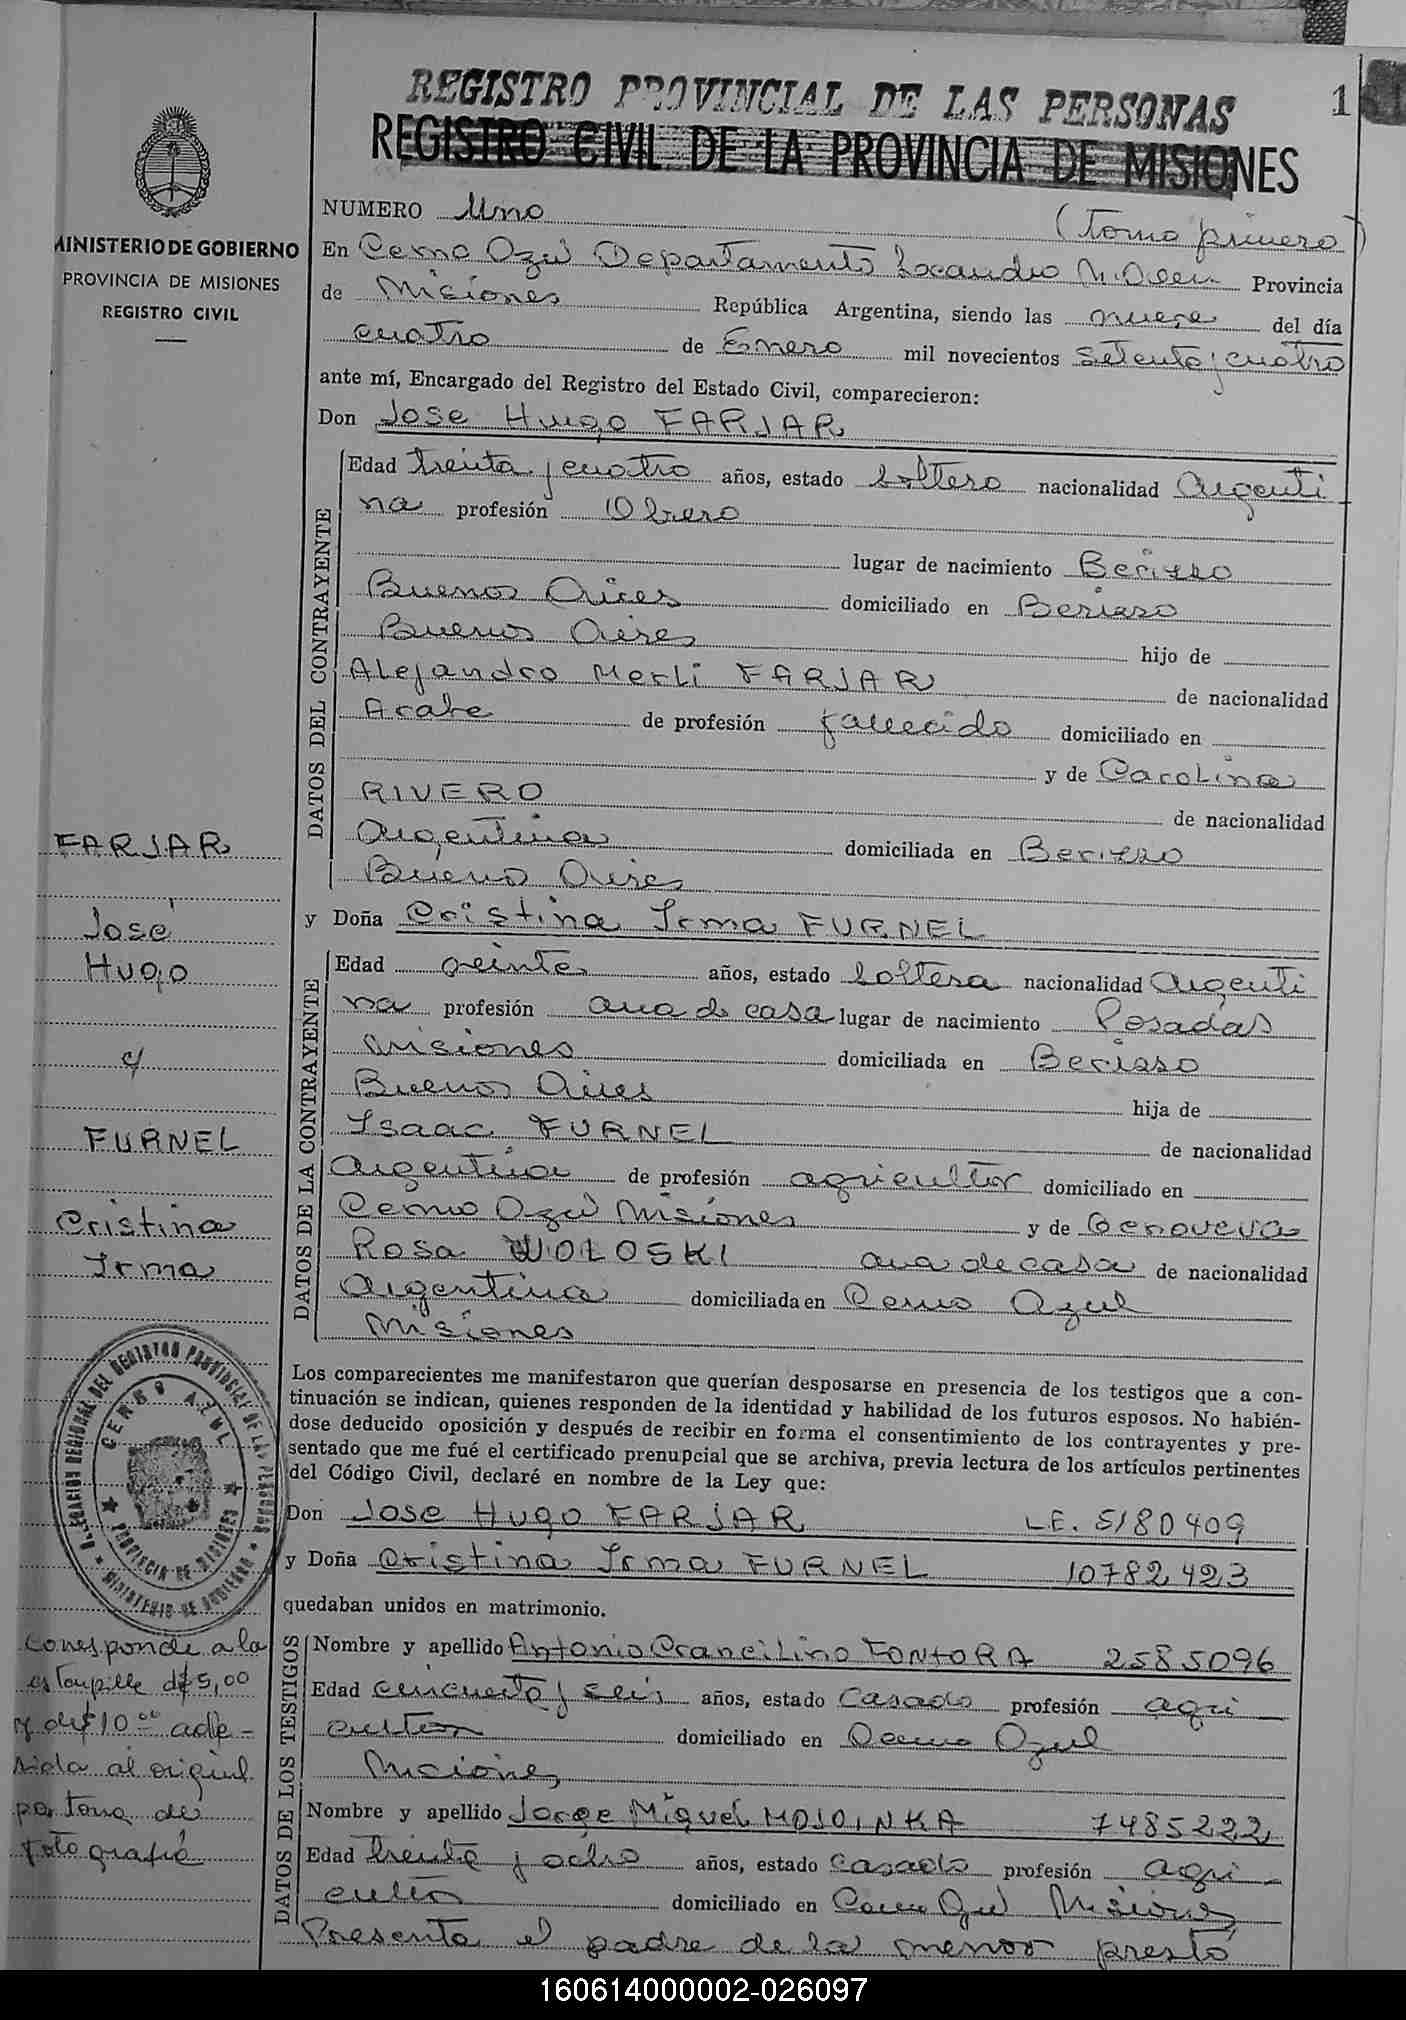 REGISTRO PROVINCIAL DE LAS PERSONAS
1
REGISTRO CIVIL DE LA PROVINCIA DE MISIONES
MINISTERIO DE GOBIERNO
PROVINCIA DE MISIONES
REGISTRO CIVIL
NUMERO Uno
(Tomo primero)
En Cerro Azul Departamento Leandro N. Alem Provincia
de Misiones República Argentina, siendo las nueve del día
cuatro de Enero mil novecientos setenta y cuatro
ante mí, Encargado del Registro del Estado Civil, comparecieron:
Don Jose Hugo FARJAR
DATOS DEL CONTRAYENTE
Edad treinta y cuatro años, estado soltero nacionalidad Argenti
na profesión Obrero
lugar de nacimiento Berisso
Buenos Aires domiciliado en Berisso
Buenos Aires hijo de
Alejandro Merli FARJAR de nacionalidad
Arabe de profesión fallecido domiciliado en
y de Carolina
RIVERO de nacionalidad
Argentina domiciliada en Berisso
Buenos Aires
y Doña Cristina Irma FURNEL
DATOS DE LA CONTRAYENTE
Edad veinte años, estado soltera nacionalidad Argenti
na profesión ama de casa lugar de nacimiento Posadas
Misiones domiciliada en Berisso
Buenos Aires hija de
Isaac FURNEL de nacionalidad
Argentina de profesión agricultor domiciliado en
Cerro Azul Misiones y de Genoveva
Rosa WOLOSKI ama de casa de nacionalidad
Argentina domiciliada en Cerro Azul
Misiones
Los comparecientes me manifestaron que querían desposarse en presencia de los testigos que a con-
tinuación se indican, quienes responden de la identidad y habilidad de los futuros esposos. No habién-
dose deducido oposición y después de recibir en forma el consentimiento de los contrayentes y pre-
sentado que me fué el certificado prenupcial que se archiva, previa lectura de los artículos pertinentes
del Código Civil, declaré en nombre de la Ley que:
Don Jose Hugo FARJAR L.E. 5180409
y Doña Cristina Irma FURNEL 10782423
quedaban unidos en matrimonio.
DATOS DE LOS TESTIGOS
Nombre y apellido Antonio FONTORA 2585096
Edad cincuenta y seis años, estado casado profesión agri
cultor domiciliado en Cerro Azul
Misiones
Nombre y apellido Jorge Miguel 7485222
Edad treinta y ocho años, estado casado profesión agri
cultor domiciliado en Cerro Azul Misiones
Presente el padre de la menor prestó
FARJAR
José
Hugo
c/
FURNEL
Cristina
Irma
DEL REGISTRO PROVINCIAL DE LAS PERSONAS
CERRO AZUL
PROVINCIA DE MISIONES
MINISTERIO DE GOBIERNO
Corresponde a la
estampilla de $5,00
y de $10 00 adhe-
rida al original
por toma de
fotografía
160614000002-026097